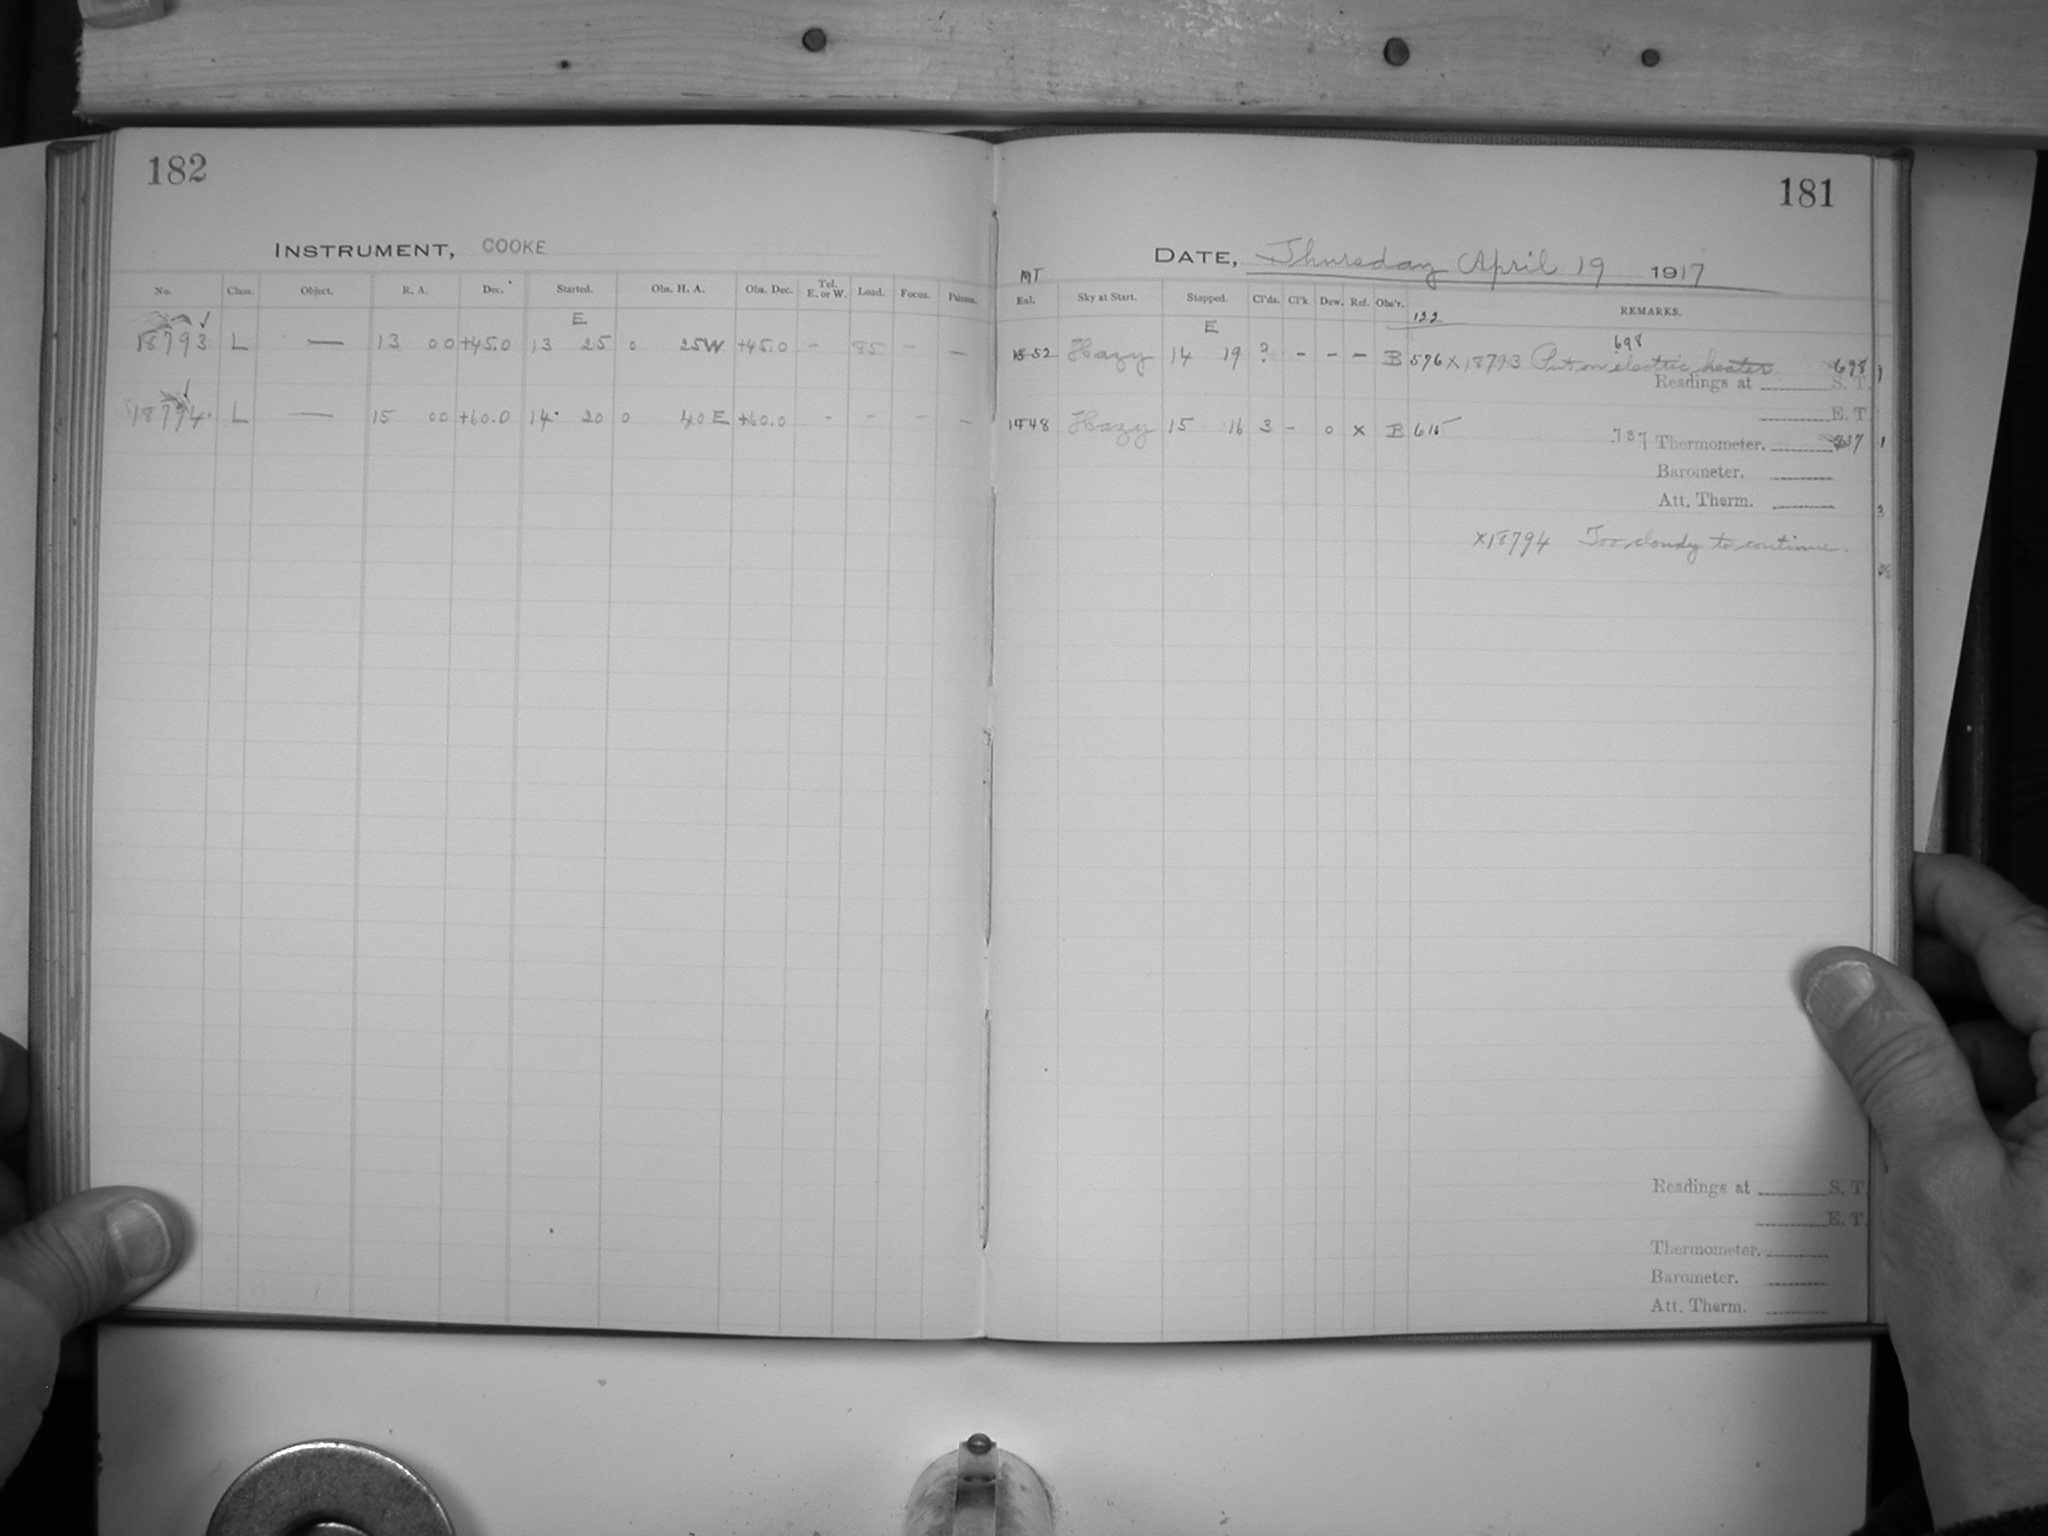 182
INSTRUMENT, COOKE
No. Class. Object. R. A. Dec. Started. Obs. H. A. Obs. Dec. Tel. E. or W. Load. Focus. Prisms.
E
18793 L — 13 00 +45.0 13 25 0 25W +45.0 - 85 - —
18794 L — 15 00 +60.0 14 20 0 40 E +60.0 - - - —
181
DATE, Thursday April 19 1917
MT
Exl. Sky at Start. Stopped. Cl'ds. Cl'k. Dew. Ref. Obs'r. REMARKS.
122
E
698
52 Hazy 14 19 ? - - - B 576 X 18793 Put on electric heater 698 1
Readings at S. T.
E. T.
48 Hazy 15 16 3 - 0 x B 615 737 Thermometer. 737 1
Barometer.
Att. Therm.
3
X18794 Too cloudy to continue.
Readings at S. T.
E. T.
Thermometer.
Barometer.
Att. Therm.